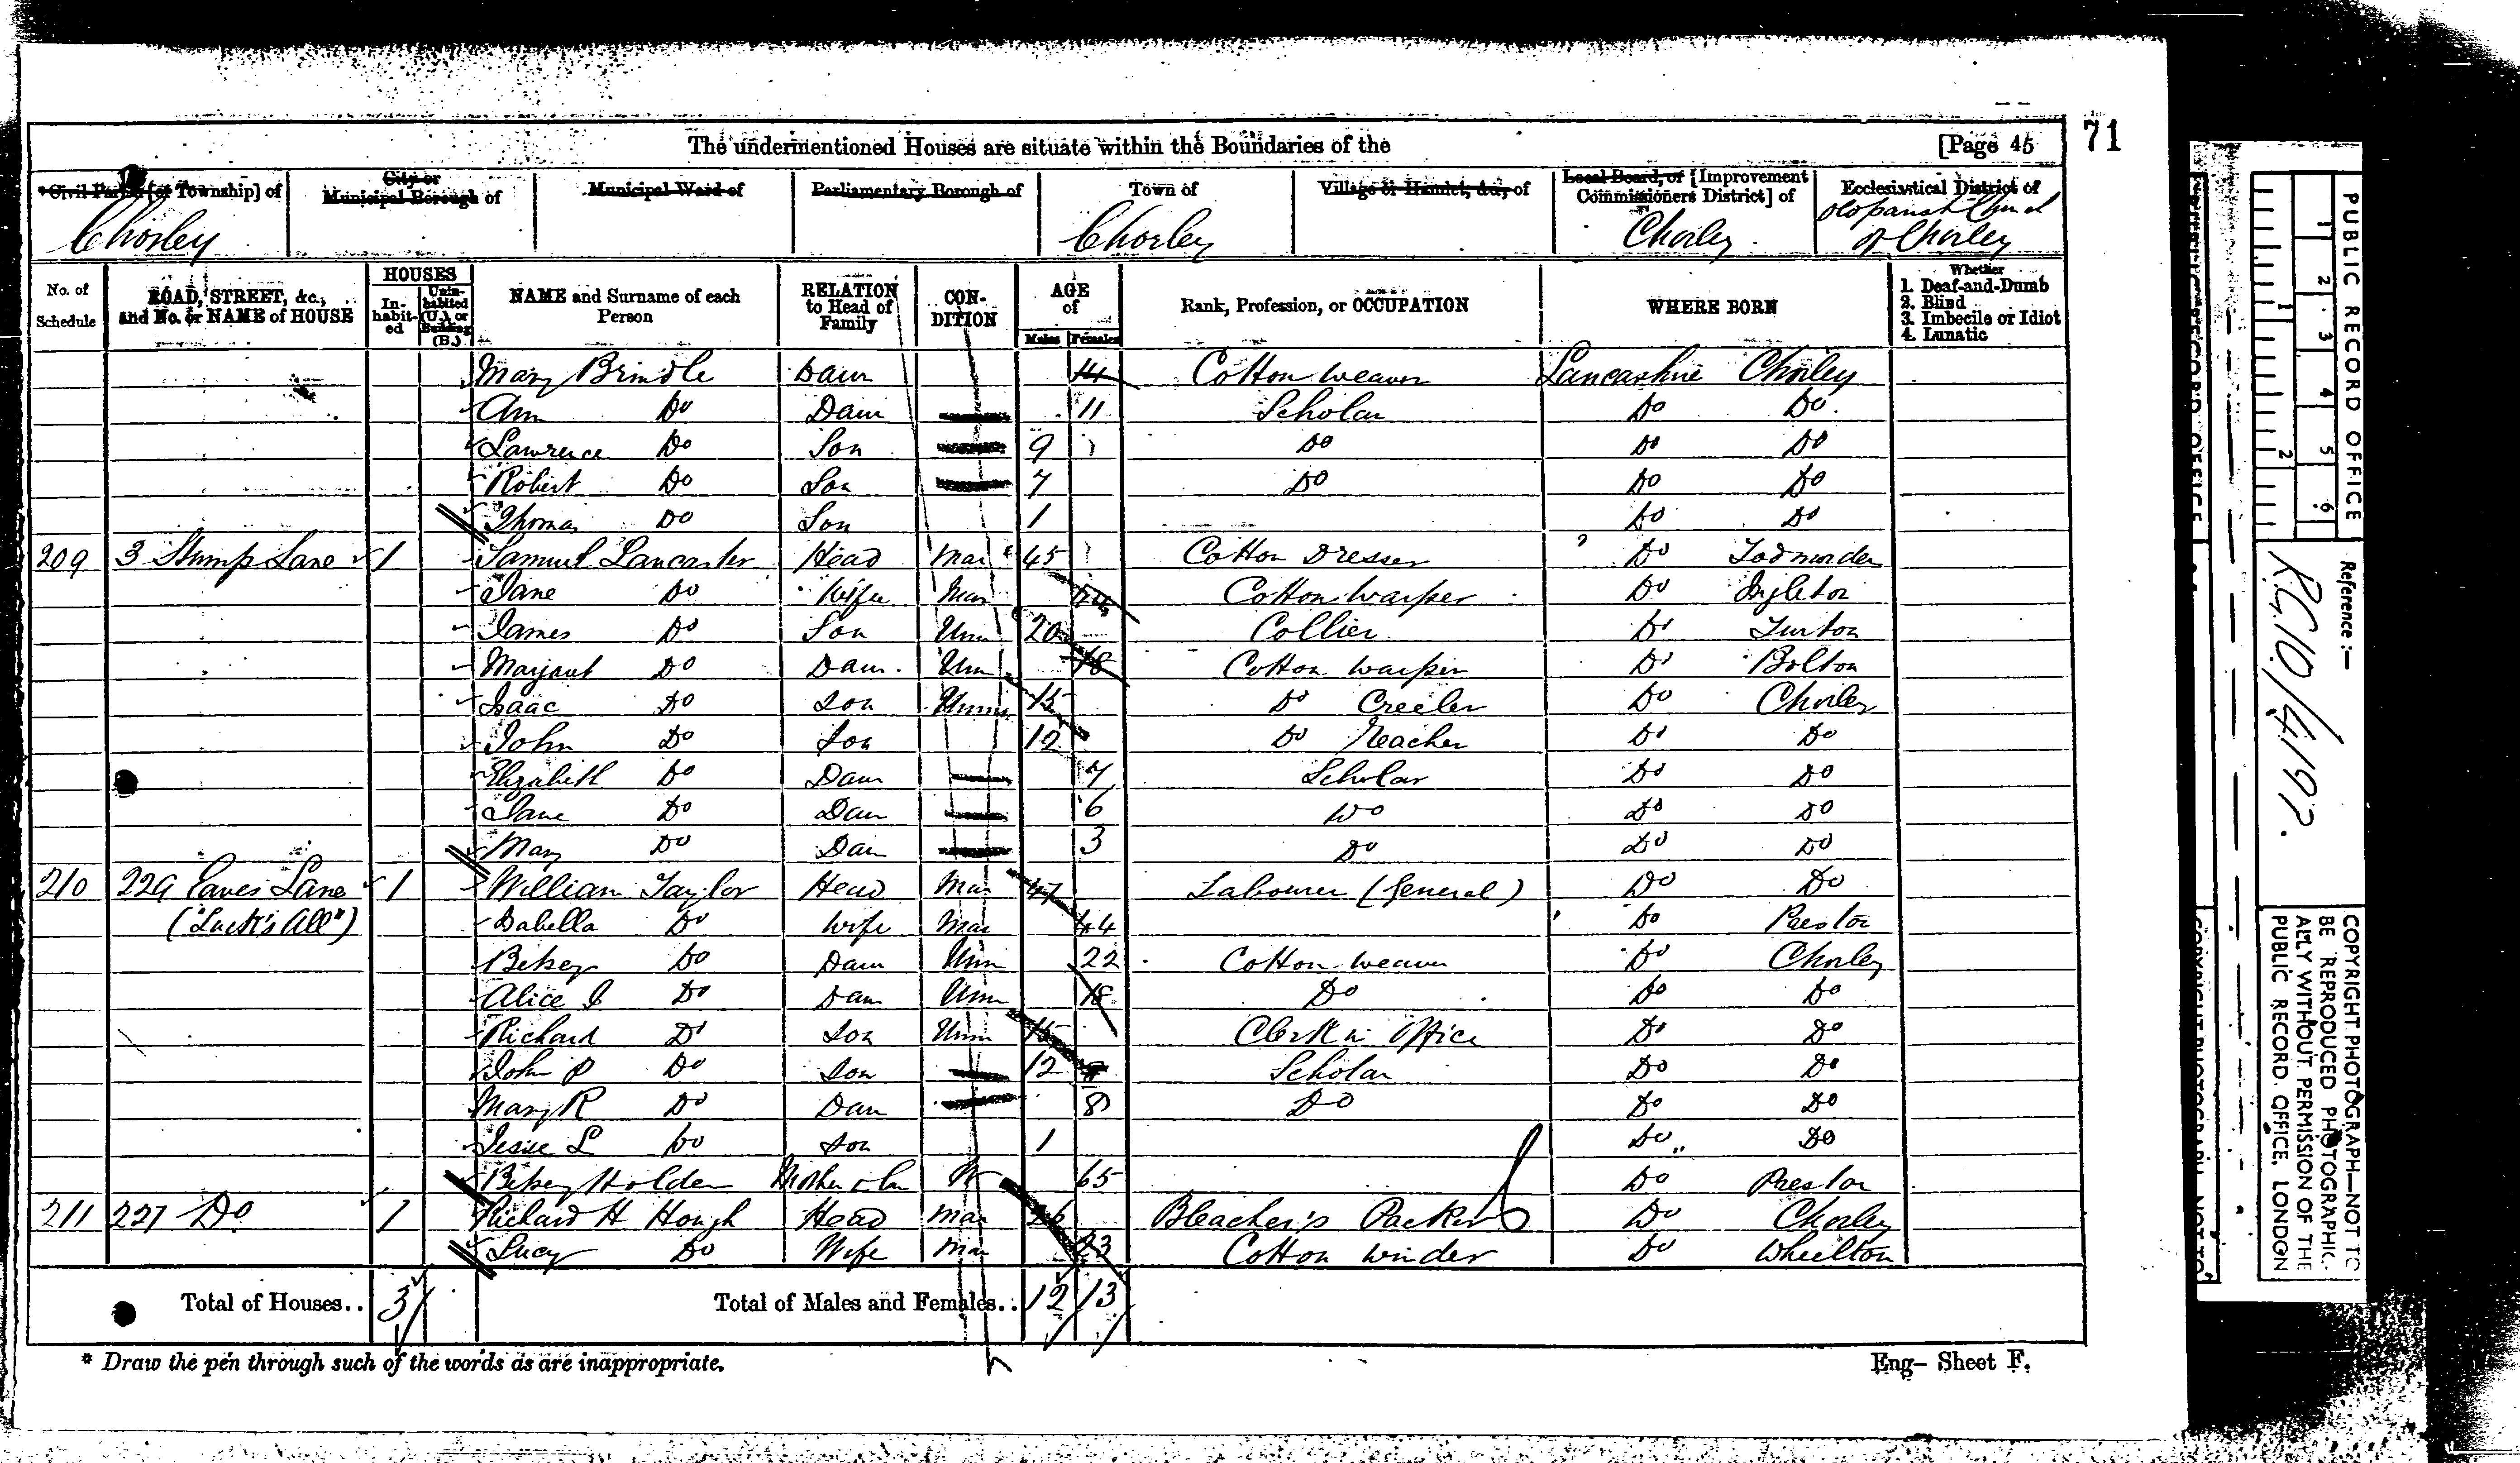 The undermentioned Houses are situate within the Boundaries of the [Page 45 71
*Civil Parish [or Township] of City or Municipal Borough of Municipal Ward of Parliamentary Borough of Town of Village or Hamlet, &c., of Local Board, or [Improvement Commissioners District] of Ecclesiastical District of
Chorley Chorley Chorley of Chorley
No. of Schedule ROAD, STREET, &c., and No. or NAME of HOUSE HOUSES Inhabited Uninhabited (U.), or Building (B.) NAME and Surname of each Person RELATION to Head of Family CONDITION AGE of Males Females Rank, Profession, or OCCUPATION WHERE BORN Whether 1. Deaf-and-Dumb 2. Blind 3. Imbecile or Idiot 4. Lunatic
Mary Brindle Daur 14 Cotton Weaver Lancashire Chorley
Ann Do Daur 11 Scholar Do Do
Lawrence Do Son 9 Do Do Do
Robert Do Son 7 Do Do Do
Thomas Do Son 1 Do Do
209 3 Stump Lane 1 Samuel Lancaster Head Mar 45 Cotton Dresser Do Todmorden
Jane Do Wife Mar Cotton Warper Do Ingleton
James Do Son Unm 20 Collier Do Turton
Margaret Do Daur Unm 18 Cotton Warper Do Bolton
Isaac Do Son Unm 15 Do Creeler Do Chorley
John Do Son 12 Do Reacher Do Do
Elizabeth Do Daur 7 Scholar Do Do
Jane Do Daur 6 Do Do Do
Mary Do Daur 3 Do Do Do
210 229 Eaves Lane 1 William Taylor Head Mar 47 Labourer (General) Do Do
("Luck's All") Isabella Do Wife Mar 44 Do Preston
Betsey Do Daur Unm 22 Cotton Weaver Do Chorley
Alice J Do Daur Unm 18 Do Do Do
Richard Do Son Unm 15 Clerk in Office Do Do
John P Do Son 12 Scholar Do Do
Mary R Do Daur 8 Do Do Do
Jesse L Do Son 1 Do Do
Betsey Holden Mother in law W 65 Do Preston
211 227 Do 1 Richard H Hough Head Mar 26 Bleacher's Packer Do Chorley
Lucy Do Wife Mar 23 Cotton Winder Do Wheelton
Total of Houses.. 3 Total of Males and Females.. 12 13
* Draw the pen through such of the words as are inappropriate.
Eng- Sheet F.
PUBLIC RECORD OFFICE
1 2 3 4 5 6
1 2
Reference:—
R.G.10/4197.
COPYRIGHT PHOTOGRAPH—NOT TO
BE REPRODUCED PHOTOGRAPHIC-
ALLY WITHOUT PERMISSION OF THE
PUBLIC RECORD OFFICE, LONDON